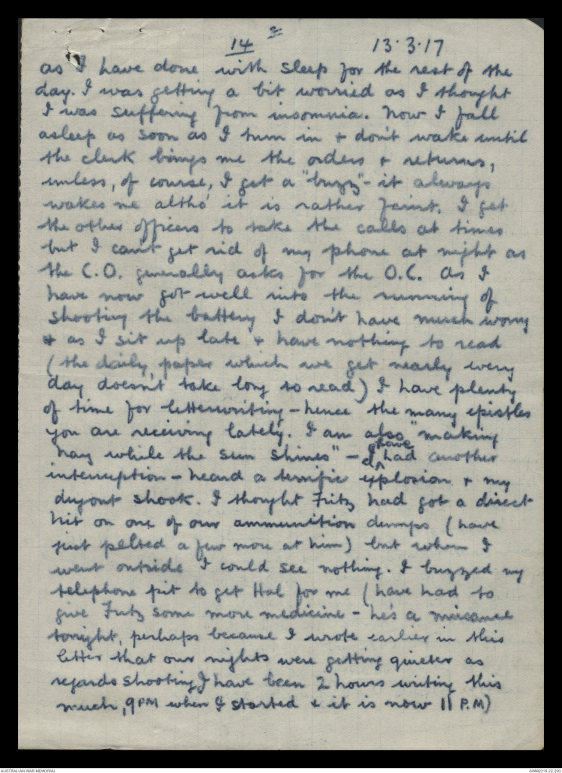 14
13.3.17
as I have done with sleep for the rest of the
day. I was getting a bit worried as I thought
I was suffering from insomnia. Now I fall
asleep as soon as I turn in + don't wake until
the clerk brings me the orders + returns,
unless, of course, I get a "buzz" - it always
wakes me altho' it is rather faint. I get
the other officers to take the calls at times
but I can't get rid of my phone at night as
the C.O. generally asks for the O.C. As I
have now got well into the running of
shooting the battery I don't have much worry
+ as I sit up late + have nothing to read
(the daily paper which we get nearly every
day doesn't take long to read) I have plenty
of time for letterwriting - hence the many epistles
you are receiving lately. I am also "making
hay while the sun shines" - have had another
interruption - heard a terrific explosion + my
dugout shook. I thought Fritz had got a direct
hit on one of our ammunition dumps (have
just pelted a few more at him) but when I
went outside I could see nothing. I buzzed my
telephone pit to get Hal for me (have had to
give Fritz some more medicine - he's a nuisance
tonight, perhaps because I wrote earlier in this
letter that our nights were getting quieter as
regards shooting I have been 2 hours writing this
much, 9PM when I started & it is now 11 P.M)
AUSTRALIAN WAR MEMORIAL